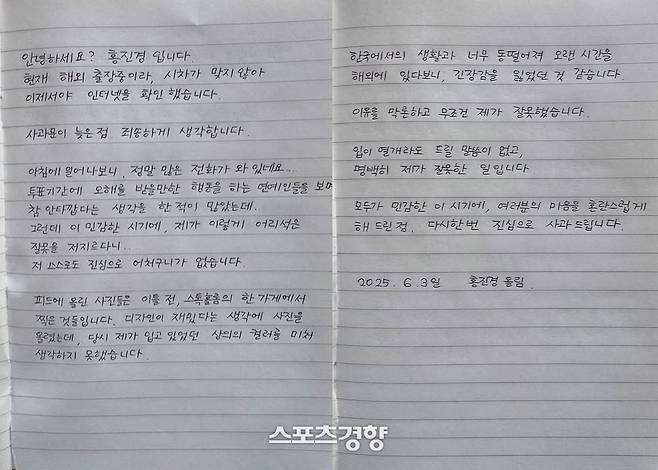 안녕하세요? 홍진경 입니다.
현재 해외 출장중이라, 시차가 맞지 않아
이제서야 인터넷을 확인 했습니다.
사과문이 늦은 점 죄송하게 생각합니다.
아침에 일어나보니, 정말 많은 전화가 와 있네요....
투표기간에 오해를 받을만한 행동을 하는 연예인들을 보며
참 안타깝다는 생각을 한 적이 많았는데..
그런데 이 민감한 시기에, 제가 이렇게 어리석은
잘못을 저지르다니..
저 스스로도 진심으로 어처구니가 없습니다.
피드에 올린 사진들은 이틀 전, 스톡홀름의 한 가게에서
찍은 것들입니다. 디자인이 재밌다는 생각에 사진을
올렸는데, 당시 제가 입고 있었던 상의의 컬러를 미처
생각하지 못했습니다.
한국에서의 생활과 너무 동떨어져 오랜 시간을
해외에 있다보니, 긴장감을 잃었던 것 같습니다.
이유를 막론하고 무조건 제가 잘못했습니다.
입이 열개라도 드릴 말씀이 없고,
명백히 제가 잘못한 일입니다.
모두가 민감한 이 시기에, 여러분의 마음을 혼란스럽게
해 드린 점. 다시한번 진심으로 사과드립니다.
2025. 6. 3일 홍진경 올림.
스포츠경향